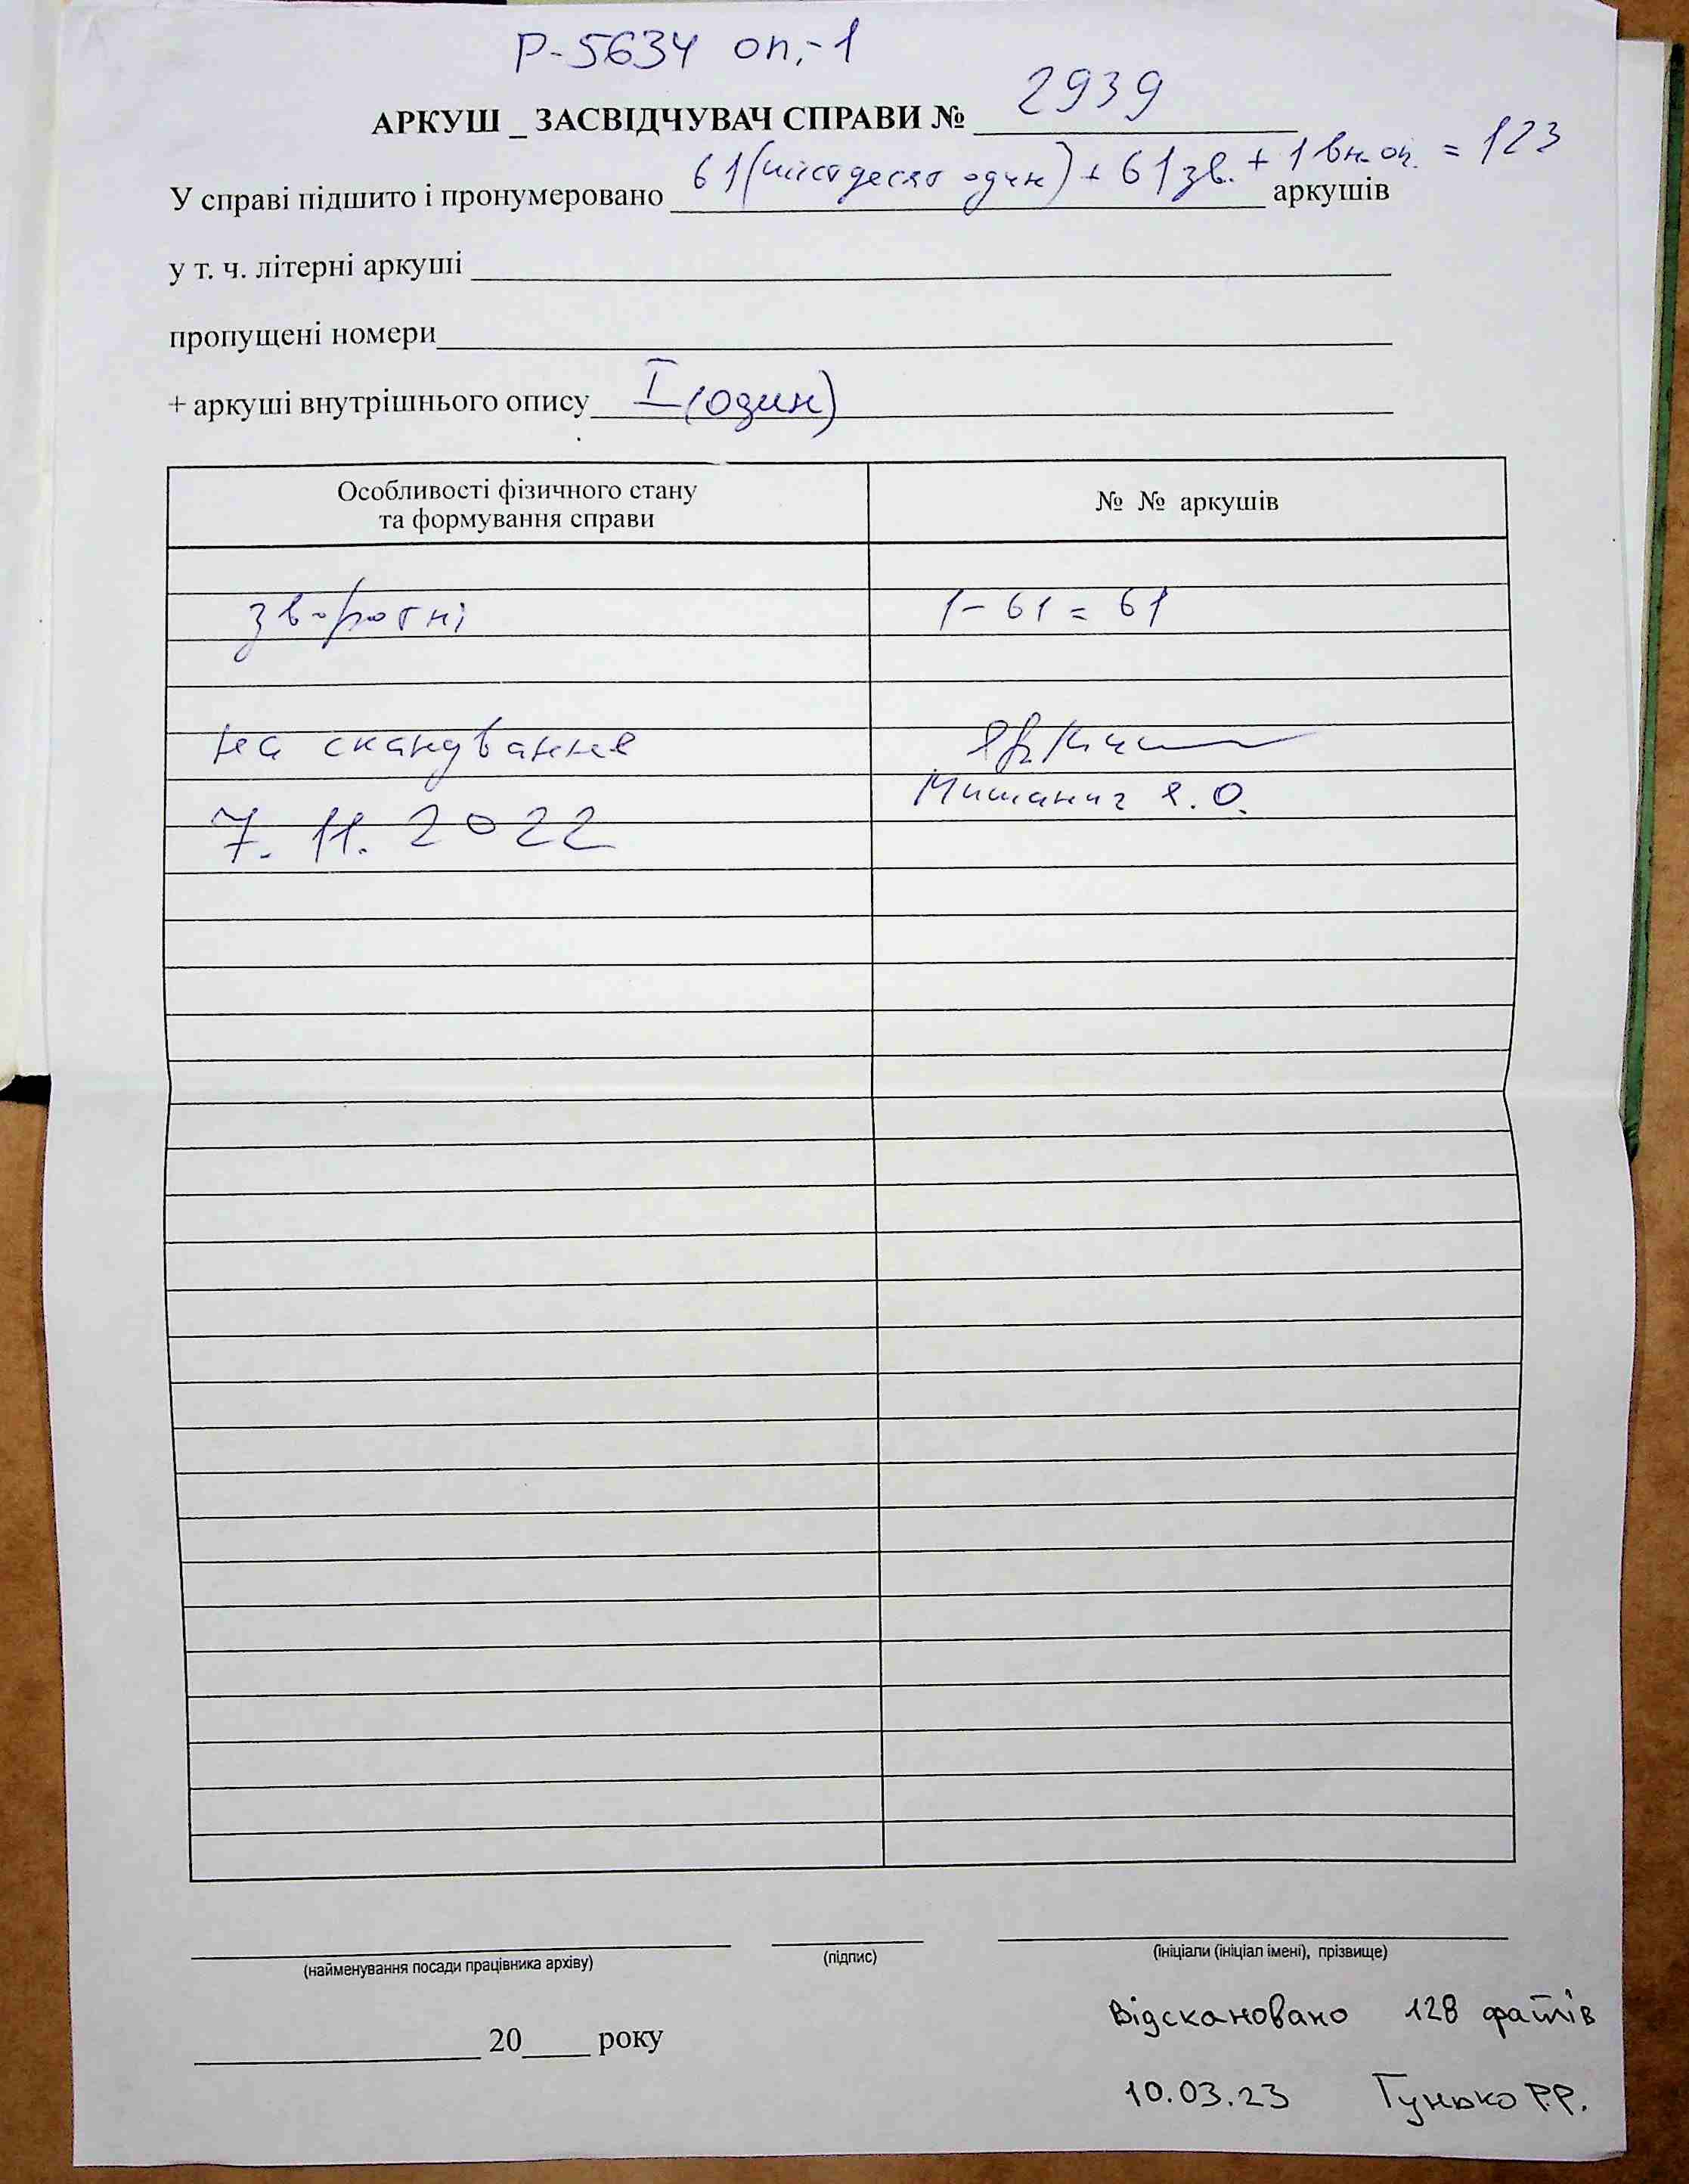 Р-5634 оп.-1
АРКУШ _ ЗАСВІДЧУВАЧ СПРАВИ № 2939
У справі підшито і пронумеровано 61 (шістдесят один) + 61 зв. + 1 вн. оп. = 123 аркушів
у т. ч. літерні аркуші
пропущені номери
+ аркуші внутрішнього опису I (один)
Особливості фізичного стану та формування справи
№ № аркушів
зворотні 1-61 = 61
на сканування
Мишанич Я. О.
7. 11. 2022
(найменування посади працівника архіву) (підпис) (ініціали (ініціал імені), прізвище)
Відскановано 128 файлів
20 року
10.03.23 Гунько Р.Р.